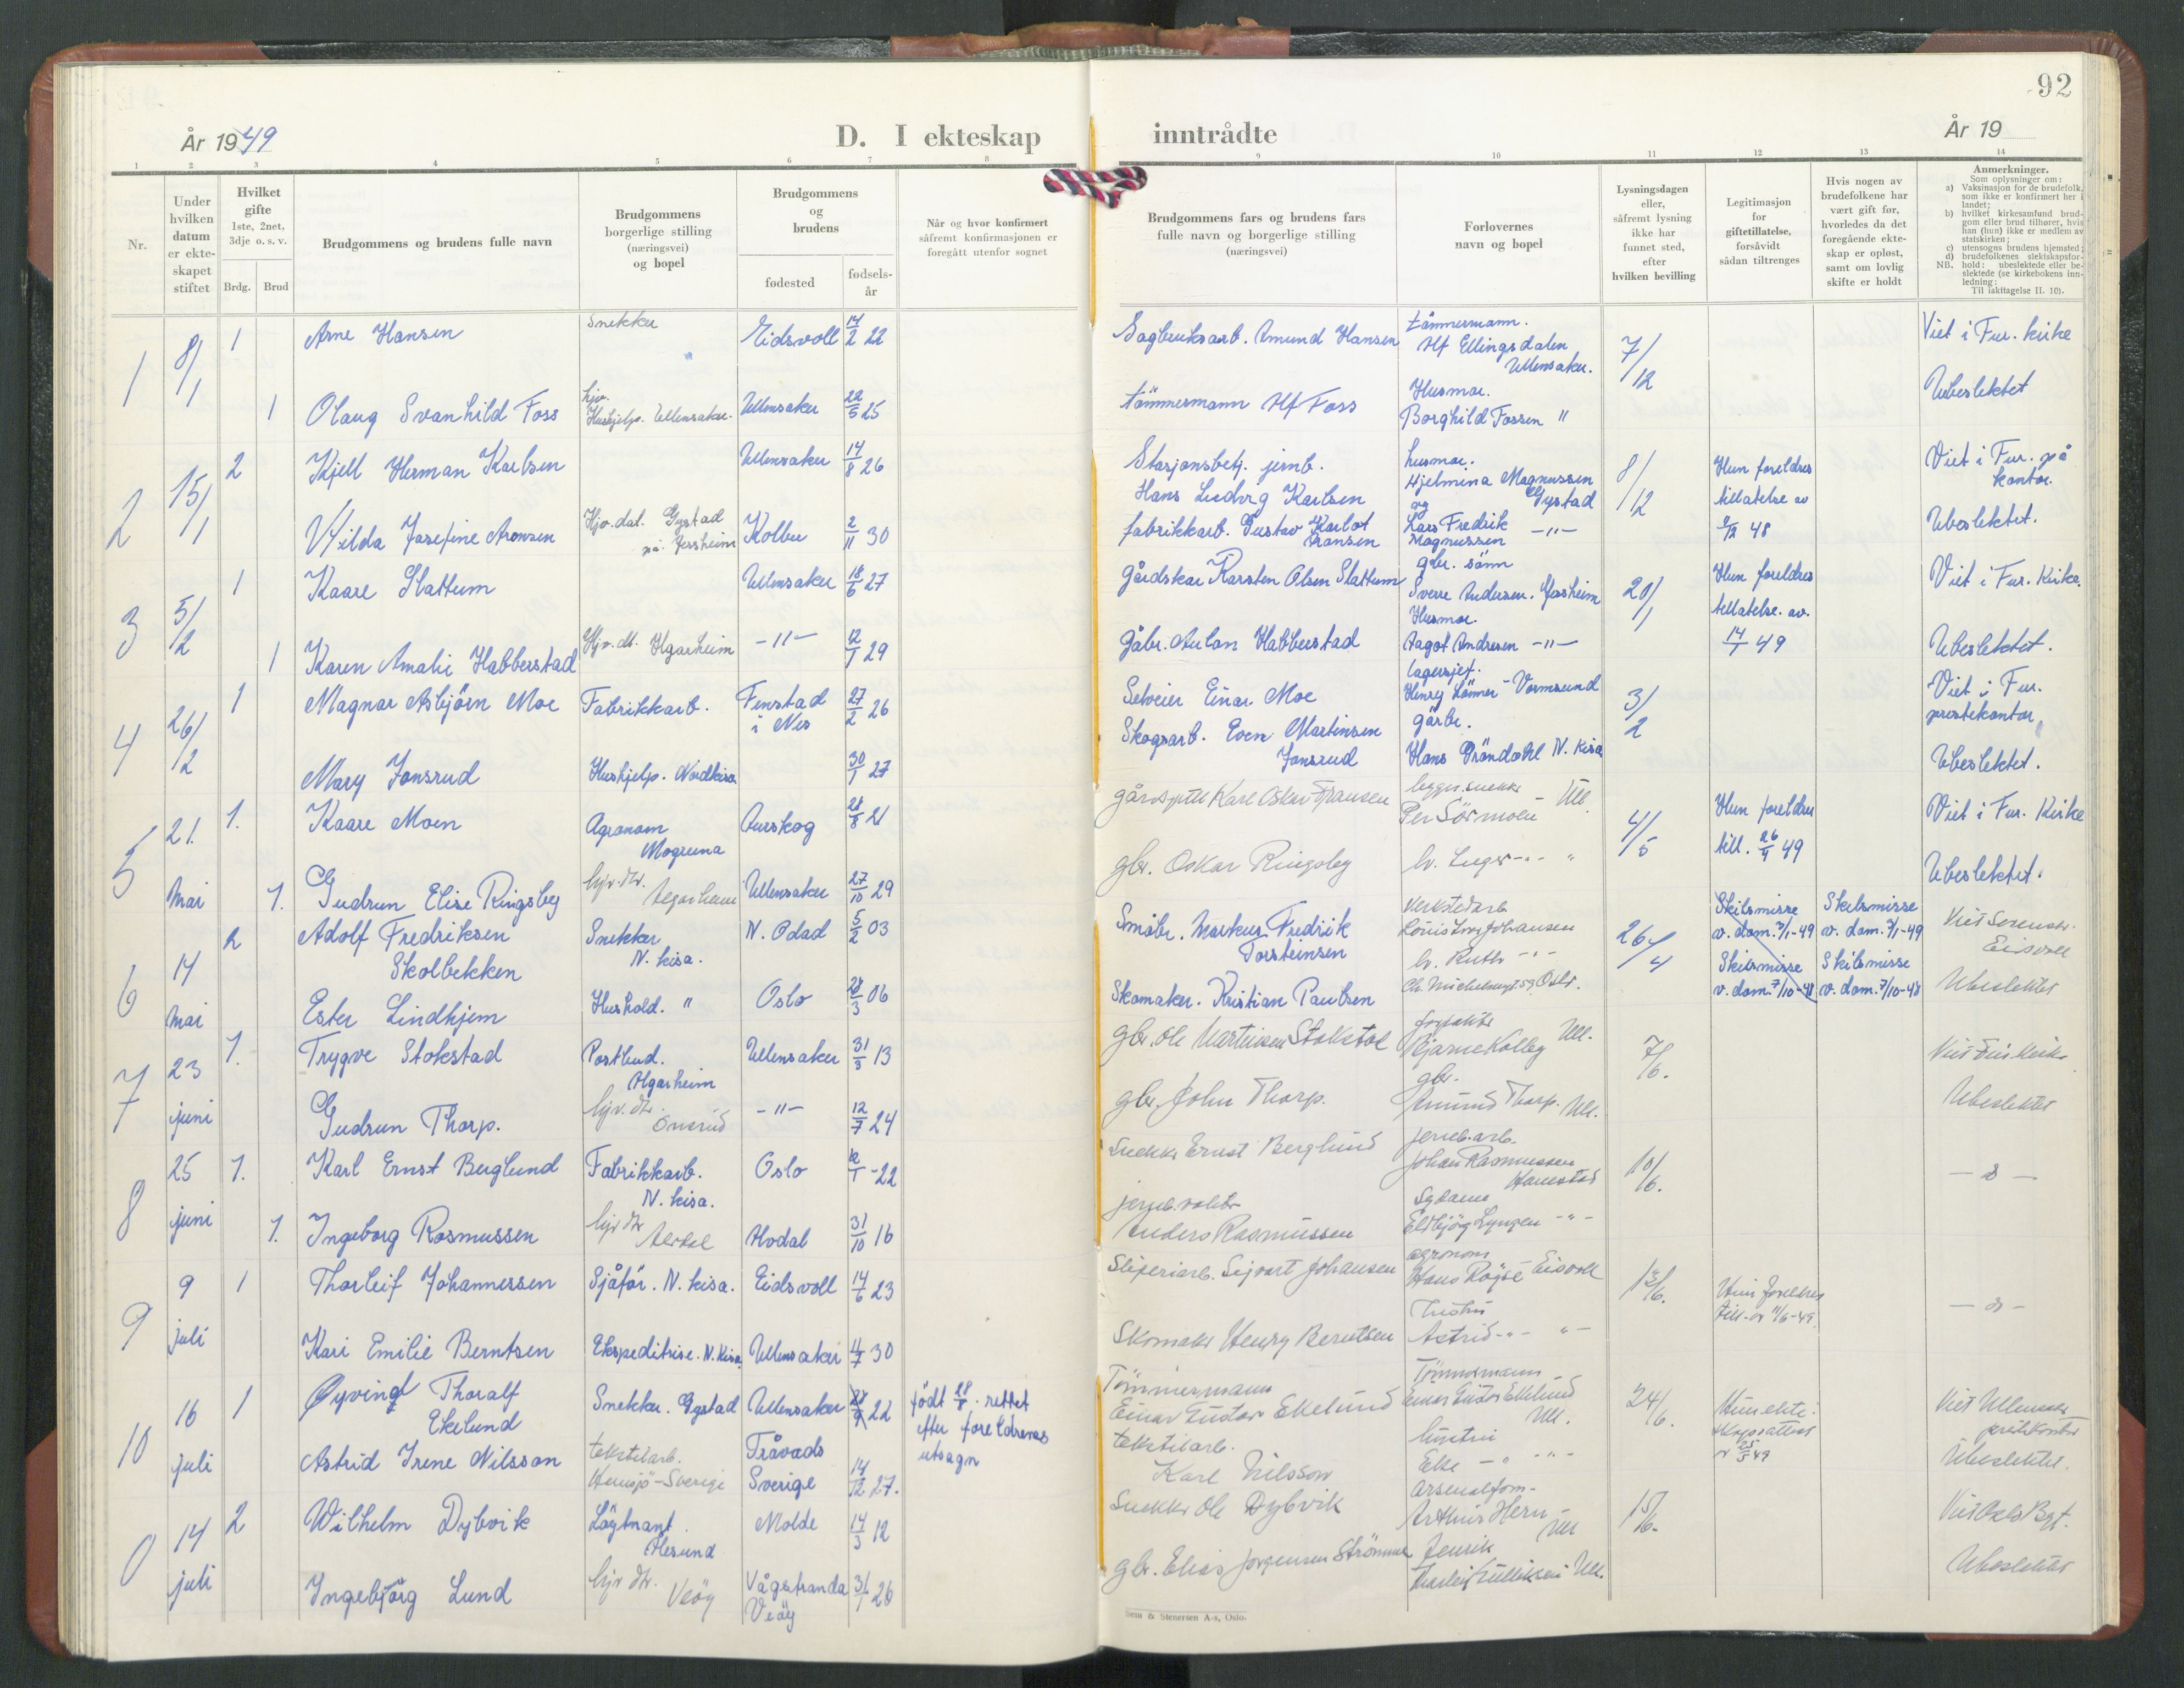 92
År 1949
D. I ekteskap inntrådte
År 19
1 2 3 4 5 6 7 8 9 10 11 12 13 14
Nr.
Under hvilken datum er ekte-skapet stiftet
Hvilket gifte
1ste, 2net, 3dje o. s. v.
Brdg. Brud
Brudgommens og brudens fulle navn
Brudgommens borgerlige stilling (næringsvei) og bopel
Brudgommens og brudens
fødested
fødsels-år
Når og hvor konfirmert såfremt konfirmasjonen er foregått utenfor sognet
Brudgommens fars og brudens fars fulle navn og borgerlige stilling (næringsvei)
Forlovernes navn og bopel
Lysningsdagen eller, såfremt lysning ikke har funnet sted, efter hvilken bevilling
Legitimasjon for giftetillatelse, forsåvidt sådan tiltrenges
Hvis nogen av brudefolkene har vært gift før, hvorledes da det foregående ekte-skap er opløst, samt om lovlig skifte er holdt
Anmerkninger.
Som oplysninger om:
a) Vaksinasjon for de brudefolk, som ikke er konfirmert her i landet;
b) hvilket kirkesamfund brud-gom eller brud tilhører, hvis han (hun) ikke er medlem av statskirken;
c) utensogns brudens hjemsted;
d) brudefolkenes slektskapsfor-hold: ubeslektede eller be-slektede (se kirkebokens inn-ledning:
NB. Til iakttagelse II. 10).
1 8/1 1 Arne Hansen Snekker Eidsvoll 14/2 22 Sagbruksarb. Amund Hansen tömmermann. Alf Ellingsdalen Ullensaker. 7/12 Viet i Fur. kirke
1 Olaug Svanhild Foss hjv. Hushjelp. Ullensaker. Ullensaker 22/5 25 tömmermann Alf Foss Husmor. Borghild Fossen " Ubeslektet
2 15/1 2 Kjell Herman Karlsen Ullensaker 14/8 26 Stasjonsbetj. jernb. Hans Ludvig Karlsen husmor. Hjelmina Magnussen Gystad 8/12 Hun foreldres tillatelse av 9/12 48 Viet i Fur. på kontor.
Vilda Josefine Aronsen Hjv. dat. Gystad på Jessheim Kolbu 2/11 30 fabrikkarb. Gustav Karlot Aronsen og Lars Fredrik Magnussen -"- Ubeslektet.
3 5/2 1 Kaare Slattum Ullensaker 18/6 27 Gårdskar Karsten Olsen Slattum gbr. sönn Sverre Andersen. Jessheim 20/1 Hun foreldres tillatelse. av. 14/1 49 Viet i Fur. Kirke.
1 Karen Amalie Habberstad Hjv. dt. Algarheim -"- 12/1 29 Gåbr. Aulan Habberstad Husmor. Aagot Andresen -"- Ubeslektet.
4 26/2 1 Magnar Asbjörn Moe Fabrikkarb. Fenstad i Nes 27/2 26 Selveier Einar Moe lagersjef. Henry Lömmer - Vormsund 3/2 Viet i Fur. prestekontor,
Mary Jonsrud Hushjelp. Nordkisa 30/1 27 Skogsarb. Even Martinsen Jonsrud gårbr. Hans Gröndahl N. Kisa Ubeslektet.
5 21. Mai 1. Kaare Moen Agronom Mogreina Aurskog 28/8 21 Karl Oskar Fransen Per Sörmoen - Ull. 4/5 Hun foreldres till. 26/4 49 Viet i Fur. Kirke
1. Gudrun Elise Ringsby hjv. dtr. Algarheim Ullensaker 27/10 29 gbr. Oskar Ringsby Ubeslektet.
6 14 Mai 2 Adolf Fredriksen Skolbekken Snekker N. kisa. N. Odal 5/2 03 Småbr. Markus Fredrik Torsteinsen Verkstedarb Johansen 26/4 Skilsmisse v. dom. 7/1-49 Skilsmisse v. dom. 7/1-49 Viet Sorenskr. Eidsvoll
Ester Lindhjem Hushold. " Oslo 28/3 06 Skomaker. Kristian Paulsen fr. Ruth -"- Oslo. Skilsmisse v. dom. 7/10-48 Skilsmisse v. dom. 7/10-48 Ubeslektet
7 23 juni 1. Trygve Stokstad Postbud. Algarheim Ullensaker 31/3 13 gbr. Ole Martinsen Stokstad Bjarne Kolby Ull. 7/6. Viet Fur. kirke
Gudrun Thorp. hjv. dtr. Önsrud -"- 12/7 24 gbr. John Thorp. gbr. Amund Thorp. Ull. Ubeslektet
8 25 juni 1. Karl Ernst Berglund Fabrikkarb. N. kisa. Oslo 12/1 -22 Snekker Ernst Berglund jernb.arb. Johan Rasmussen Hauerstad 10/6.
1. Ingeborg Rasmussen hjv dtr Hodal 31/10 16 jernb.vokter Anders Rasmussen Sydame Eldbjörg Lyngen -"-
9 9 juli 1 Thorleif Johannessen Sjåför. N. kisa. Eidsvoll 14/6 23 Sliperiarb. Sigvart Johansen agronom Hans Röjse - Eidsvoll 13/6. Hun foreldres till. av 11/6-49
Kari Emilie Berntsen Ekspeditrise. N. Kisa. Ullensaker 4/7 30 Skomaker Henry Berntsen Hustru Astrid -"- "-
10 16 juli 1 Øyvind Thoralf Ekelund Snekker. Gystad Ullensaker 22 født 28/8. rettet efter foreldrenes utsagn Tömmermann Einar Gustav Ekelund Tömmermann Einar Gustav Ekelund Ull. 24/6. Hun ekte-skapsattest av 25/5 49 Viet Ullensaker prestekontor
Astrid Irene Nilsson tekstilarb. Hemsjö - Sverige Tråvads Sverige 14/12 27. tekstilarb. Karl Nilsson hustru Else -" -"- Ubeslektet.
0 14 juli 2 Wilhelm Dybvik Löytnant. Ålesund Molde 14/3 12 Snekker Ole Dybvik Arsenalform- Arthur Hern - Ull 15/6. Viet Oslo Byf.
Ingebjörg Lund hjv dtr. Veöy Vågstranda Veöy 31/1 26 gbr. Elias Jörgensen Strömme Ull. Ubeslektet
Sem & Stenersen A-s, Oslo.